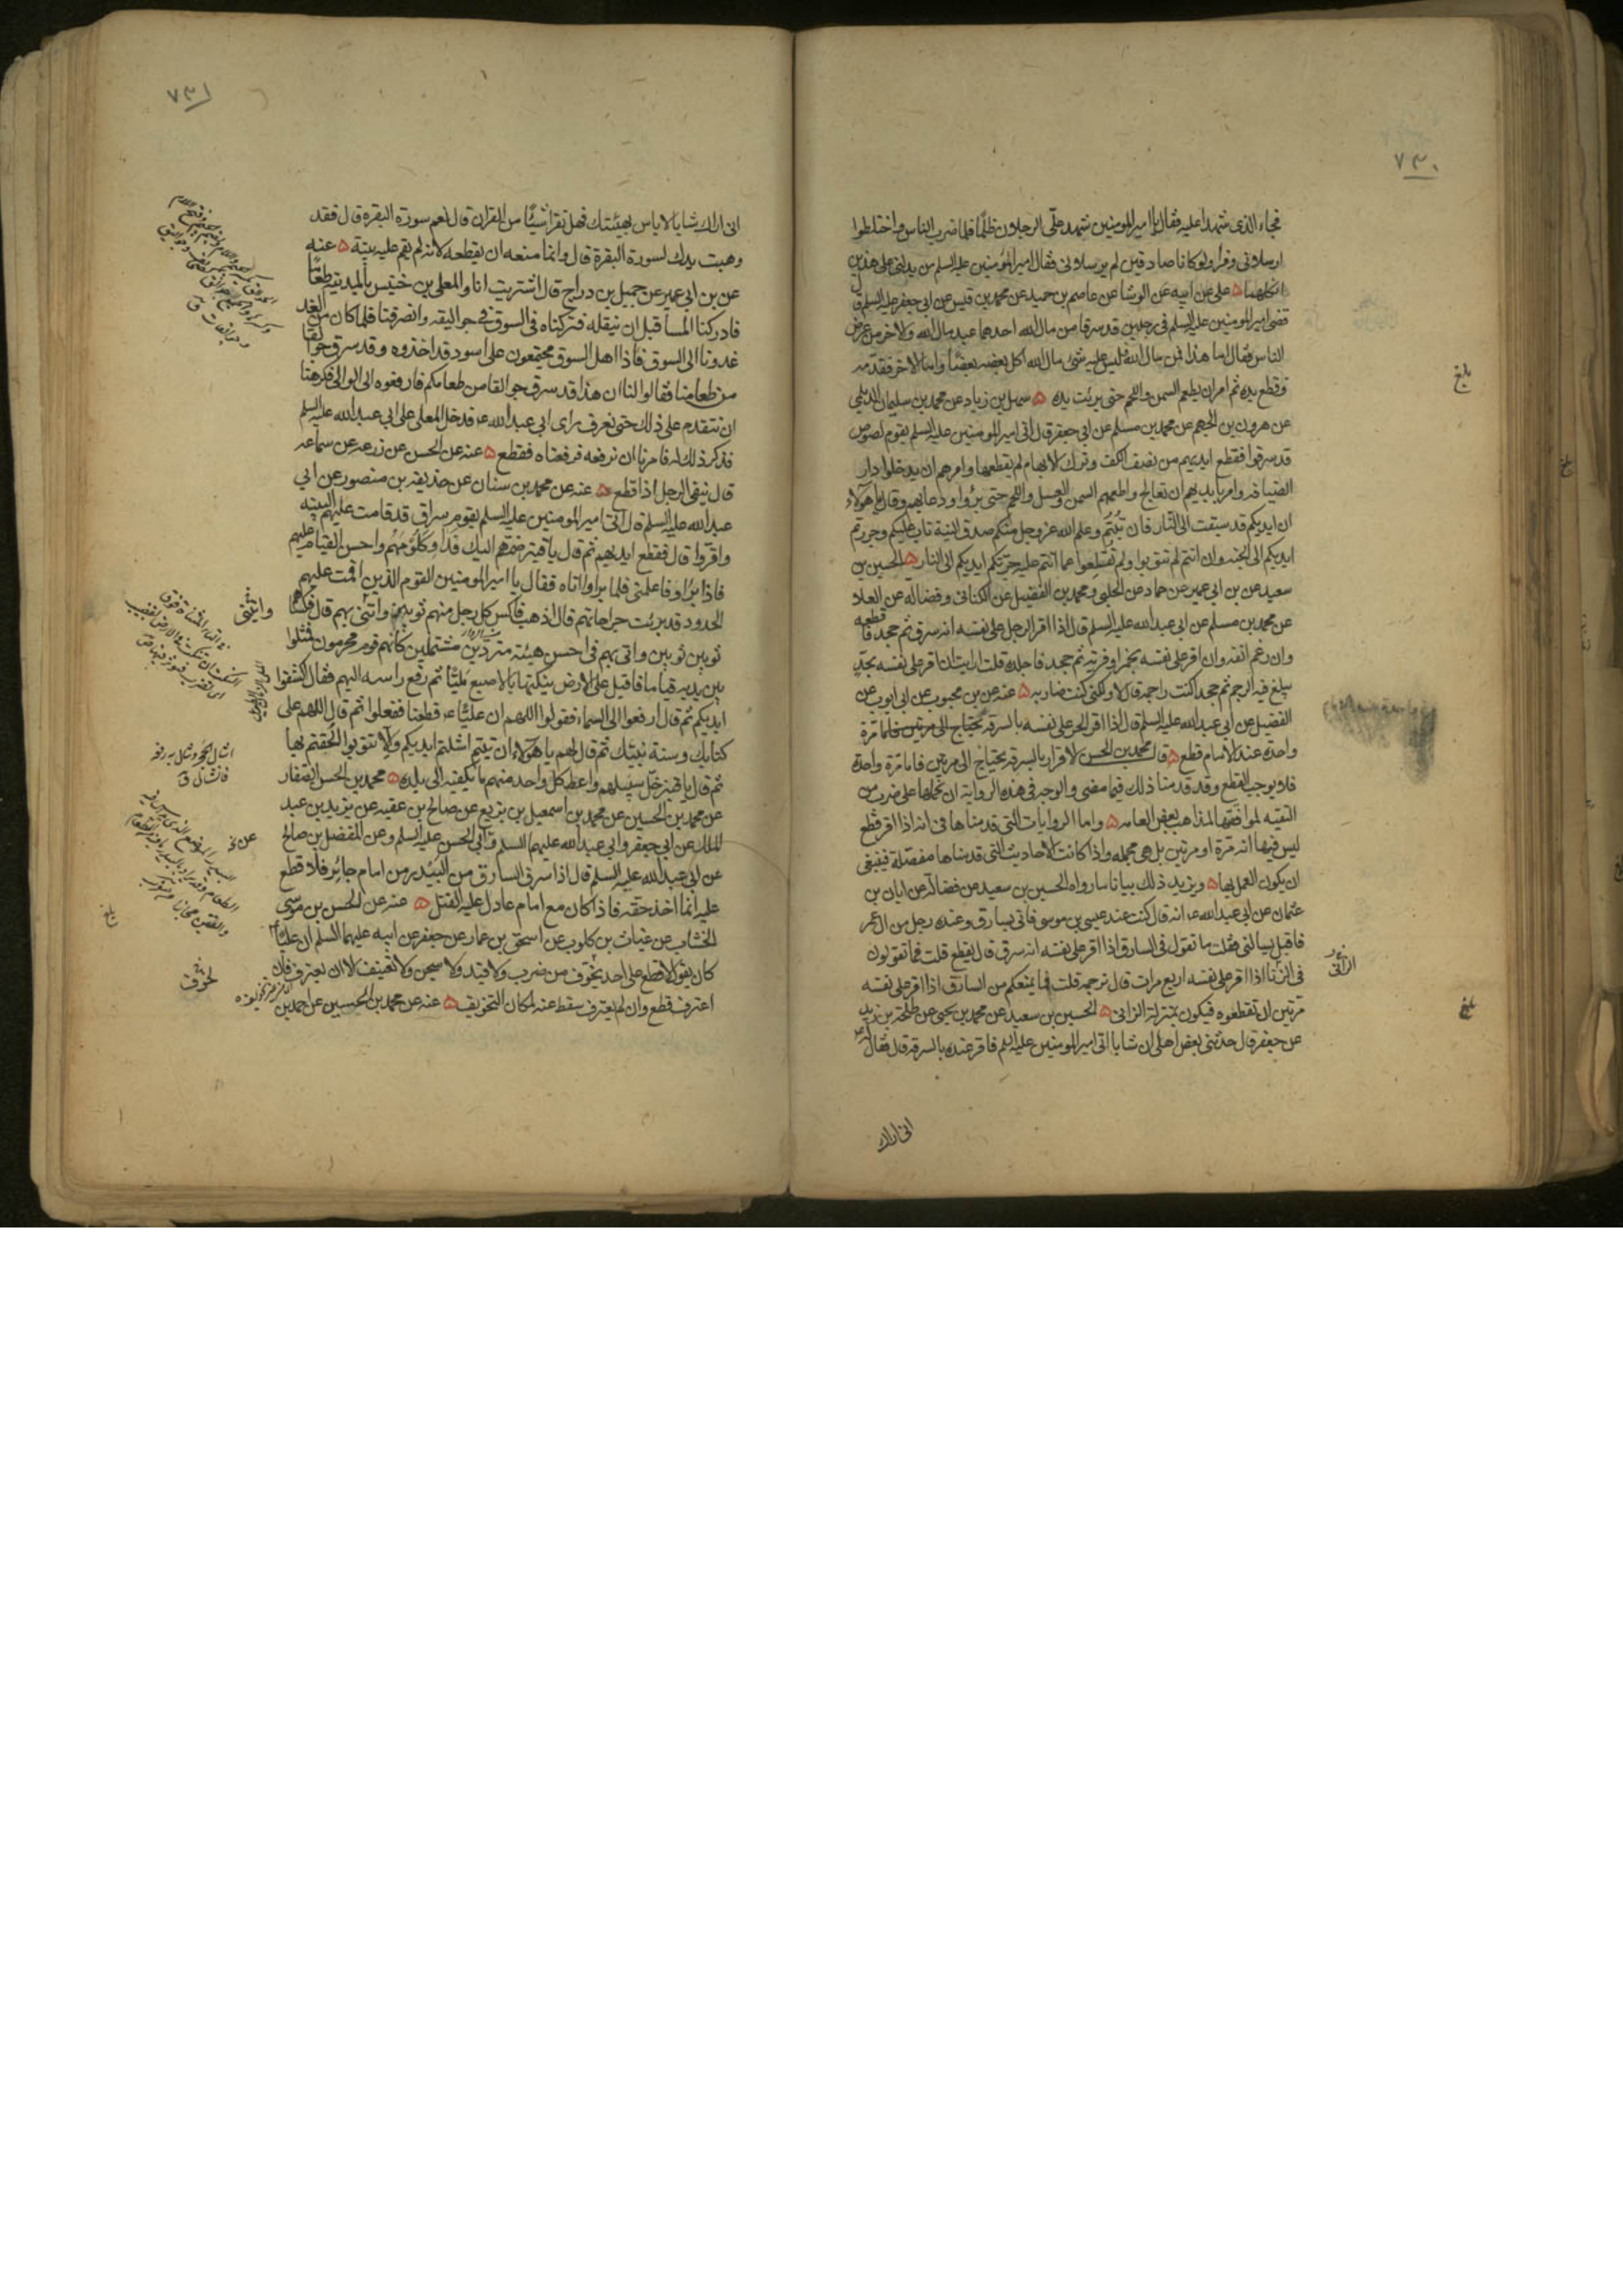 ٧٣٠
فجاء الذى شهدا عليه فقال يا امير المومنين شهد على الرجلان ظلما فلما ضرب الناس واختلطوا
ارسلانى وفرا ولو كانا صادقين لم يرسلانى فقال امير المؤمنين عليه السلم من يدلنى على هذين
انكلهما ٥ على عن ابيه عن الوشا عن عاصم بن حميد عن محمد بن قيس عن ابى جعفر عليه السلم قال
قضى امير المومنين عليه السلم فى رجلين قد سرقا من مال الله احدهما عبد مال الله والاخر من عرض
الناس فقال اما هذا فمن مال الله فليس عليه شئ مال الله اكل بعضه بعضا واما الاخر فقدمه
وقطع يده ثم امر ان يطعم السمن واللحم حتى برئت يده ٥ سهل بن زياد عن محمد بن سليمان الديلمى
عن هرون بن الجهم عن محمد بن مسلم عن ابى جعفر قال اتى امير المومنين عليه السلم بقوم لصوص
قد سرقوا فقطع ايديهم من نصف الكف وترك الابهام لم يقطعها وامرهم ان يدخلوا دار
الضيافه وامر بايديهم ان تعالج واطعمهم السمن والعسل واللحم حتى برؤا ودعابهم وقال يا هولاء
ان ايديكم قد سبقت الى النار فان تبتم وعلم الله عز وجل منكم صدق النية تاب عليكم وجررتم
ايديكم الى الجنه وان انتم لم تتوبوا ولم تقلعوا عما انتم عليه جرتكم ايديكم الى النار ٥ الحسين بن
سعيد عن بن ابى عمير عن حماد عن الحلبى ومحمد بن الفضيل عن الكنانى وفضالة عن العلا
عن محمد بن مسلم عن ابى عبد الله عليه السلم قال اذا اقر الرجل على نفسه انه سرق ثم جحد فاقطعه
وان رغم انفه وان اقر على نفسه بخمر او فرية ثم جحد فاجلده قلت ارايت ان اقر على نفسه بحد
يبلغ فيه الرجم ثم جحد اكنت راجمه قال لا ولكنى كنت ضاربه ٥ عنه عن بن محبوب عن ابى ايوب عن
الفضيل عن ابى عبد الله عليه السلم قال اذا اقر الحر على نفسه بالسرقة
واحدة عند الامام قطع ٥ قال محمد بن الحسن الاقرار بالسرقه يحتاج الى مرتين فاما مرة واحدة
فلا يوجب القطع وقد قدمنا ذلك فيما مضى والوجه فى هذه الرواية ان نحملها على ضرب من
التقيه لموافقتها لمذاهب بعض العامه ٥ واما الروايات التى قدمناها فى انه اذا اقر قطع
ليس فيها انه مرة او مرتين بل هى مجمله واذا كانت الاحاديث التى قدمناها مفصلة فينبغى
ان يكون العمل بها ٥ ويزيد ذلك بيانا ما رواه الحسين بن سعيد عن فضالة عن ابان بن
عثمان عن ابى عبد الله ع انه قال كنت عند عيسى بن موسى فاتى بسارق وعنده رجل من ال عمر
فاقبل يسالنى فقلت ما تقول فى السارق اذا اقر على نفسه انه سرق قال يقطع قلت فما تقولون
فى الزنا اذا اقر على نفسه اربع مرات قال نرجمه قلت فما يمنعكم من السارق اذا اقر على نفسه
مرتين ان تقطعوه فيكون بمنزلة الزانى ٥ الحسين بن سعيد عن محمد بن يحيى عن طلحة بن زيد
عن جعفر قال حدثنى بعض اهلى ان شابا اتى امير المومنين عليه السلم فاقر عنده بالسرقه قال فقال له
بلغ
بلغ
الزانى
انى اراك
٧٣١
انى اراك شابا لاباس بهيئتك فهل تقرا شيئا من القران قال نعم سورة البقرة قال فقد
وهبت يدك لسورة البقرة قال وانما منعه ان يقطعه لانه لم يقم عليه بينة ٥ عنه
عن بن ابى عمير عن جميل بن دراج قال اشتريت انا والمعلى بن خنيس بالمدينة طعاما
فادركنا المسا قبل ان ننقله فتركناه فى السوق فى جواليقه وانصرفنا فلما كان من الغد
غدونا الى السوق فاذا اهل السوق مجتمعون على اسود قد اخذوه وقد سرق جوالقا
من طعامنا فقالوا لنا ان هذا قد سرق جوالقا من طعامكم فارفعوه الى الوالى فكرهنا
ان نتقدم على ذلك حتى نعرف راى ابى عبد الله ع فدخل المعلى على ابى عبد الله عليه السلم
فذكر ذلك له فامرنا ان نرفعه فرفعناه فقطع ٥ عنه عن الحسن عن زرعه عن سماعه
قال ينفى الرجل اذا قطع ٥ عنه عن محمد بن سنان عن حذيفه بن منصور عن ابى
عبد الله عليه السلم قال اتى امير المومنين عليه السلم بقوم سراق قد قامت عليهم البينه
واقروا قال فقطع ايديهم ثم قال يا قنبر ضمهم اليك فداو كلومهم واحسن القيام عليهم
فاذا برؤا فاعلمنى فلما براوا اتاه فقال يا امير المومنين القوم الذين اقمت عليهم
الحدود قد برئت جراحاتهم قال اذهب فاكس كل رجل منهم ثوبين واتنى بهم قال فكساهم
ثوبين ثوبين واتى بهم فى احسن هيئة متردين مشتملين كانهم قوم محرمون فمثلوا
بين يديه قياما فاقبل على الارض ينكتها باصبعه مليا ثم رفع راسه اليهم فقال اكشفوا
ايديكم ثم قال ارفعوا الى السماء فقولوا اللهم ان عليا ع قطعنا ففعلوا ثم قال اللهم على
كتابك وسنة نبيك ثم قال لهم يا هؤلاء ان تبتم استللتم ايديكم والا تتوبوا الحقتم بها
ثم قال يا قنبر خل سبيلهم واعط كل واحد منهم ما يكفيه الى بلده ٥ محمد بن الحسن الصفار
عن محمد بن الحسين عن محمد بن اسمعيل بن بزيع عن صالح بن عقبه عن يزيد بن عبد
الملك عن ابى جعفر وابى عبد الله عليهما السلم وابى الحسن عليه السلم وعن المفضل بن صالح
عن ابى عبد الله عليه السلم قال اذا سرق السارق من البيدر من امام جائر فلا قطع
عليه انما اخذ حقه فاذا كان مع امام عادل عليه القتل ٥ عنه عن الحسن بن موسى
الخشاب عن غياث بن كلوب عن اسحق بن عمار عن جعفر عن ابيه عليهما السلم ان عليا
كان يقول لا قطع على احد يخوف من ضرب ولا قيد ولا سجن ولا تعنيف الا ان يعترف فان
اعترف قطع وان لم يعترف سقط عنه لمكان التخويف ٥ عنه عن محمد بن الحسين عن احمد بن
بلغ